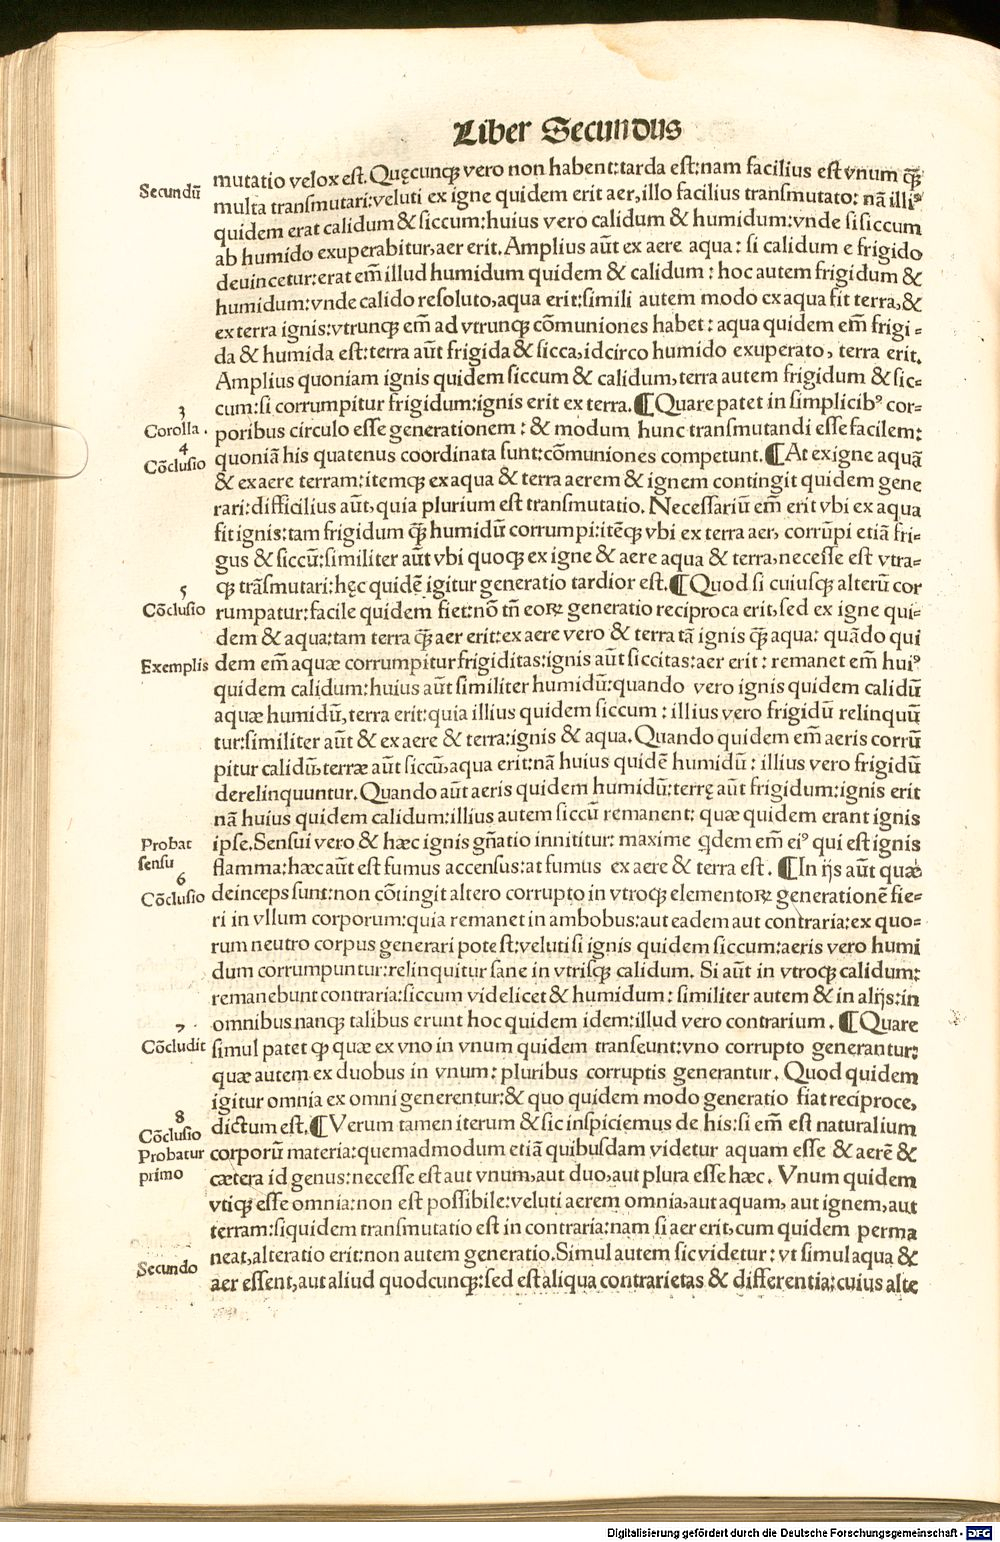 Liber Secundus
Secundū
mutatio velox est. Quęcunqꝫ vero non habent:tarda est:nam facilius est vnum qꝫ̄
multa transmutari:veluti ex igne quidem erit aer,illo facilius transmutato: nā illiꝰ
quidem erat calidum & siccum:huius vero calidum & humidum:vnde si siccum
ab humido exuperabitur,aer erit. Amplius aūt ex aere aqua: si calidum e frigido
deuincetur:erat em̄ illud humidum quidem & calidum: hoc autem frigidum &
humidum:vnde calido resoluto,aqua erit:simili autem modo ex aqua fit terra,&
ex terra ignis:vtrunqꝫ em̄ ad vtrunqꝫ cōmuniones habet: aqua quidem em̄ frigi=
da & humida est:terra aūt frigida & sicca,idcirco humido exuperato, terra erit.
Amplius quoniam ignis quidem siccum & calidum,terra autem frigidum & sic=
3
Corolla.
cum:si corrumpitur frigidum:ignis erit ex terra. ¶ Quare patet in simplicibꝰ cor=
poribus circulo esse generationem: & modum hunc transmutandi esse facilem:
4
Cōclusio
quoniā his quatenus coordinata sunt:cōmuniones competunt. ¶ At ex igne aquā
& ex aere terram:itemqꝫ ex aqua & terra aerem & ignem contingit quidem gene
rari:difficilius aūt,quia plurium est transmutatio. Necessariū em̄ erit vbi ex aqua
fit ignis:tam frigidum qꝫ̄ humidū corrumpi:itēqꝫ vbi ex terra aer, corrūpi etiā fri=
gus & siccū:similiter aūt vbi quoqꝫ ex igne & aere aqua & terra,necesse est vtra=
qꝫ trāsmutari:hęc quidē igitur generatio tardior est. ¶ Quod si cuiusqꝫ alterū cor
5
Cōclusio
rumpatur:facile quidem fiet:nō tn̄ eoꝝ generatio reciproca erit,sed ex igne qui=
dem & aqua:tam terra qꝫ̄ aer erit:ex aere vero & terra tā ignis qꝫ̄ aqua: quādo qui
Exemplis
dem em̄ aquæ corrumpitur frigiditas:ignis aūt siccitas:aer erit: remanet em̄ huiꝰ
quidem calidum:huius aūt similiter humidū:quando vero ignis quidem calidū
aquæ humidū,terra erit:quia illius quidem siccum: illius vero frigidū relinquū
tur:similiter aūt & ex aere & terra:ignis & aqua. Quando quidem em̄ aeris corrū
pitur calidū,terræ aūt siccū,aqua erit:nā huius quidē humidū: illius vero frigidū
derelinquuntur. Quando aūt aeris quidem humidū:terrę aūt frigidum:ignis erit
nā huius quidem calidum:illius autem siccū remanent: quæ quidem erant ignis
Probat
sensu
ipse. Sensui vero & hæc ignis gn̄atio innititur: maxime q̇dem em̄ eiꝰ qui est ignis
flamma:hæc aūt est fumus accensus:at fumus ex aere & terra est. ¶ In ijs aūt quæ
6
Cōclusio
deinceps sunt:non cōtingit altero corrupto in vtroqꝫ elementoꝝ generationē fie=
ri in vllum corporum:quia remanet in ambobus:aut eadem aut contraria:ex quo=
rum neutro corpus generari potest:veluti si ignis quidem siccum:aeris vero humi
dum corrumpuntur:relinquitur sane in vtrisqꝫ calidum. Si aūt in vtroqꝫ calidum:
remanebunt contraria:siccum videlicet & humidum: similiter autem & in alijs:in
omnibus nanqꝫ talibus erunt hoc quidem idem:illud vero contrarium. ¶ Quare
7
Cōcludit
simul patet ꝙ quæ ex vno in vnum quidem transeunt:vno corrupto generantur:
quæ autem ex duobus in vnum: pluribus corruptis generantur. Quod quidem
igitur omnia ex omni generentur:& quo quidem modo generatio fiat reciproce,
8
Cōclusio
dictum est. ¶ Verum tamen iterum & sic inspiciemus de his:si em̄ est naturalium
Probatur
primo
corporū materia:quemadmodum etiā quibusdam videtur aquam esse & aerē &
cætera id genus:necesse est aut vnum,aut duo,aut plura esse hæc. Vnum quidem
vtiqꝫ esse omnia:non est possibile:veluti aerem omnia,aut aquam, aut ignem,aut
terram:siquidem transmutatio est in contraria:nam si aer erit,cum quidem perma
Secundo
neat,alteratio erit:non autem generatio. Simul autem sic videtur: vt simul aqua &
aer essent,aut aliud quodcunqꝫ:sed est aliqua contrarietas & differentia:cuius alte
Digitalisierung gefördert durch die Deutsche Forschungsgemeinschaft - DFG